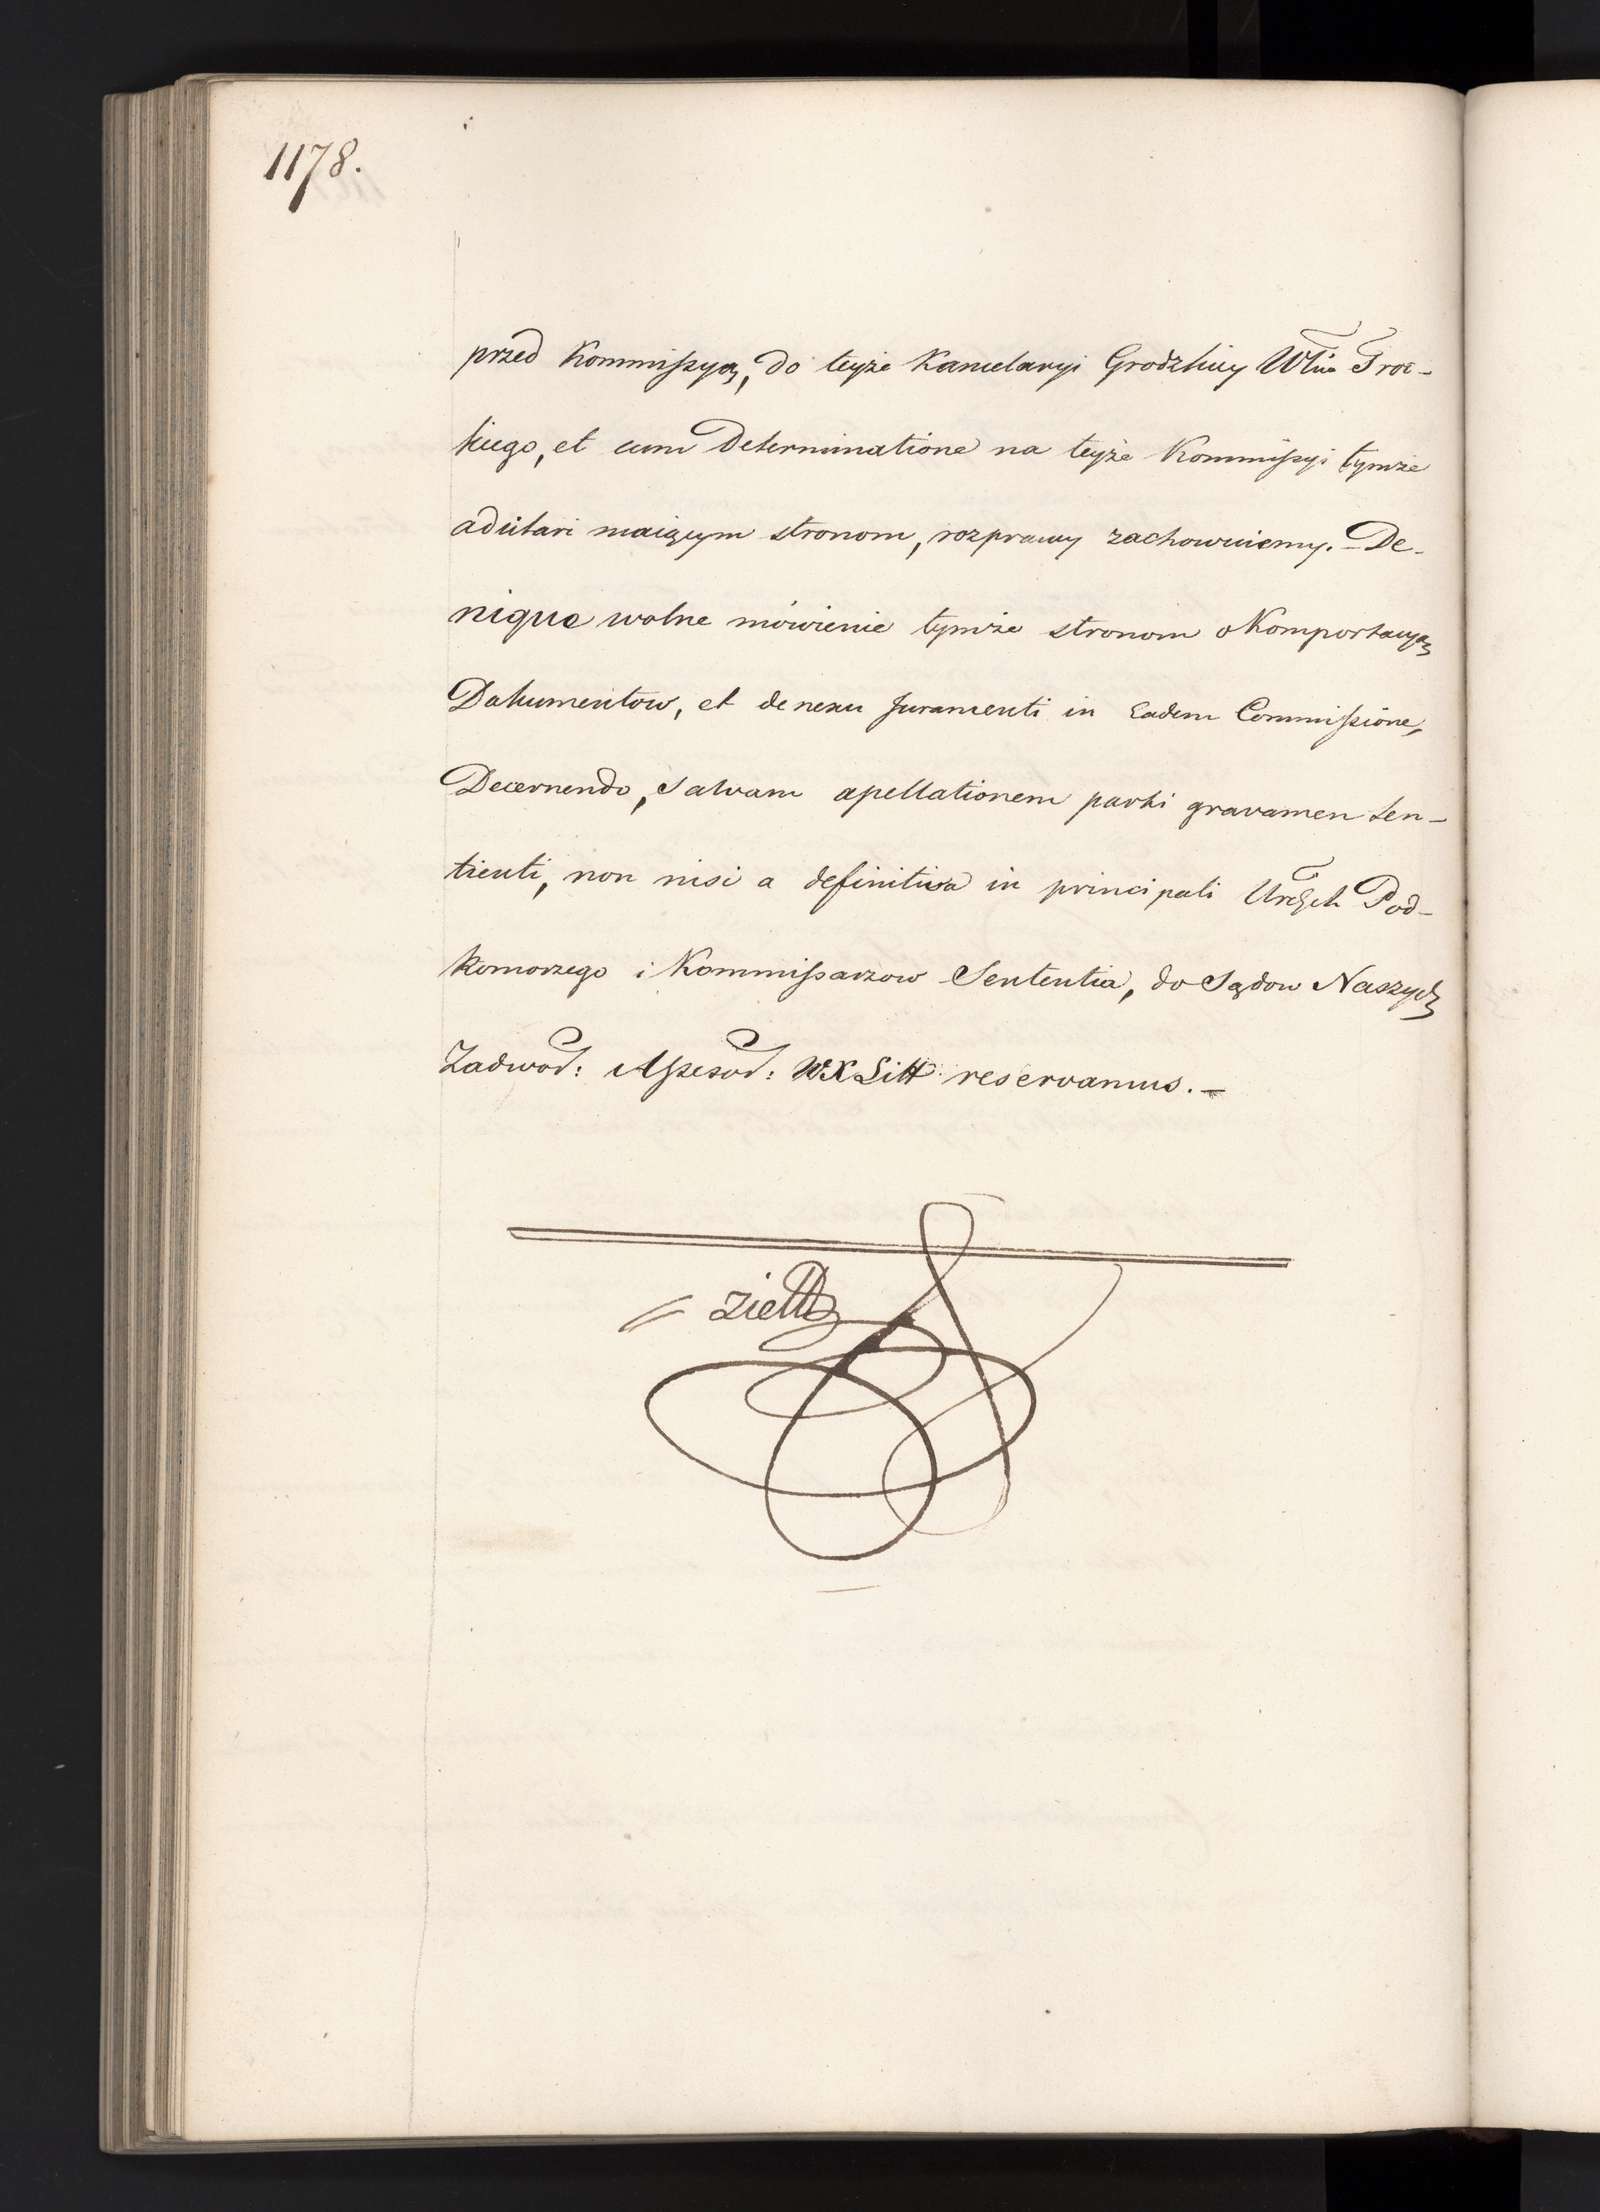 1178.
przed Kommissyą, do teyże Kancelaryi Grodzkiey Wtwa Troc-
kiego, et cum Determinatione na teyże Kommissyi tymże
adcitari maiącym stronom, rozprawy zachowuiemy. – De-
nique wolne mówienie tymże stronom o Komportacyą
Dokumentow, et de nexu Juramenti in Eadem Commissione,
Decernendo, Salvam apellationem parti gravamen sen-
tienti, non nisi a definitiva in principali Urdzch Pod-
komorzego i Kommissarzow Sententia, do Sądow Naszych
Zadwor: Assesor: WXLitt reservamus. –